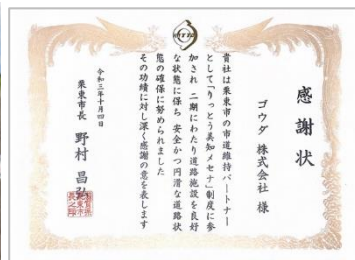 感謝状
ゴウダ 株式会社 様
貴社は栗東市の市道維持パートナー
として「りっとう異知メセナ」制度に参
加され 二期にわたり道路施設を良好
な状態に保ち 安全かつ円滑な道路状
態の確保に努められました
その功績に対し深く感謝の意を表します
令和三年十月四日
栗東市長 野村 昌弘